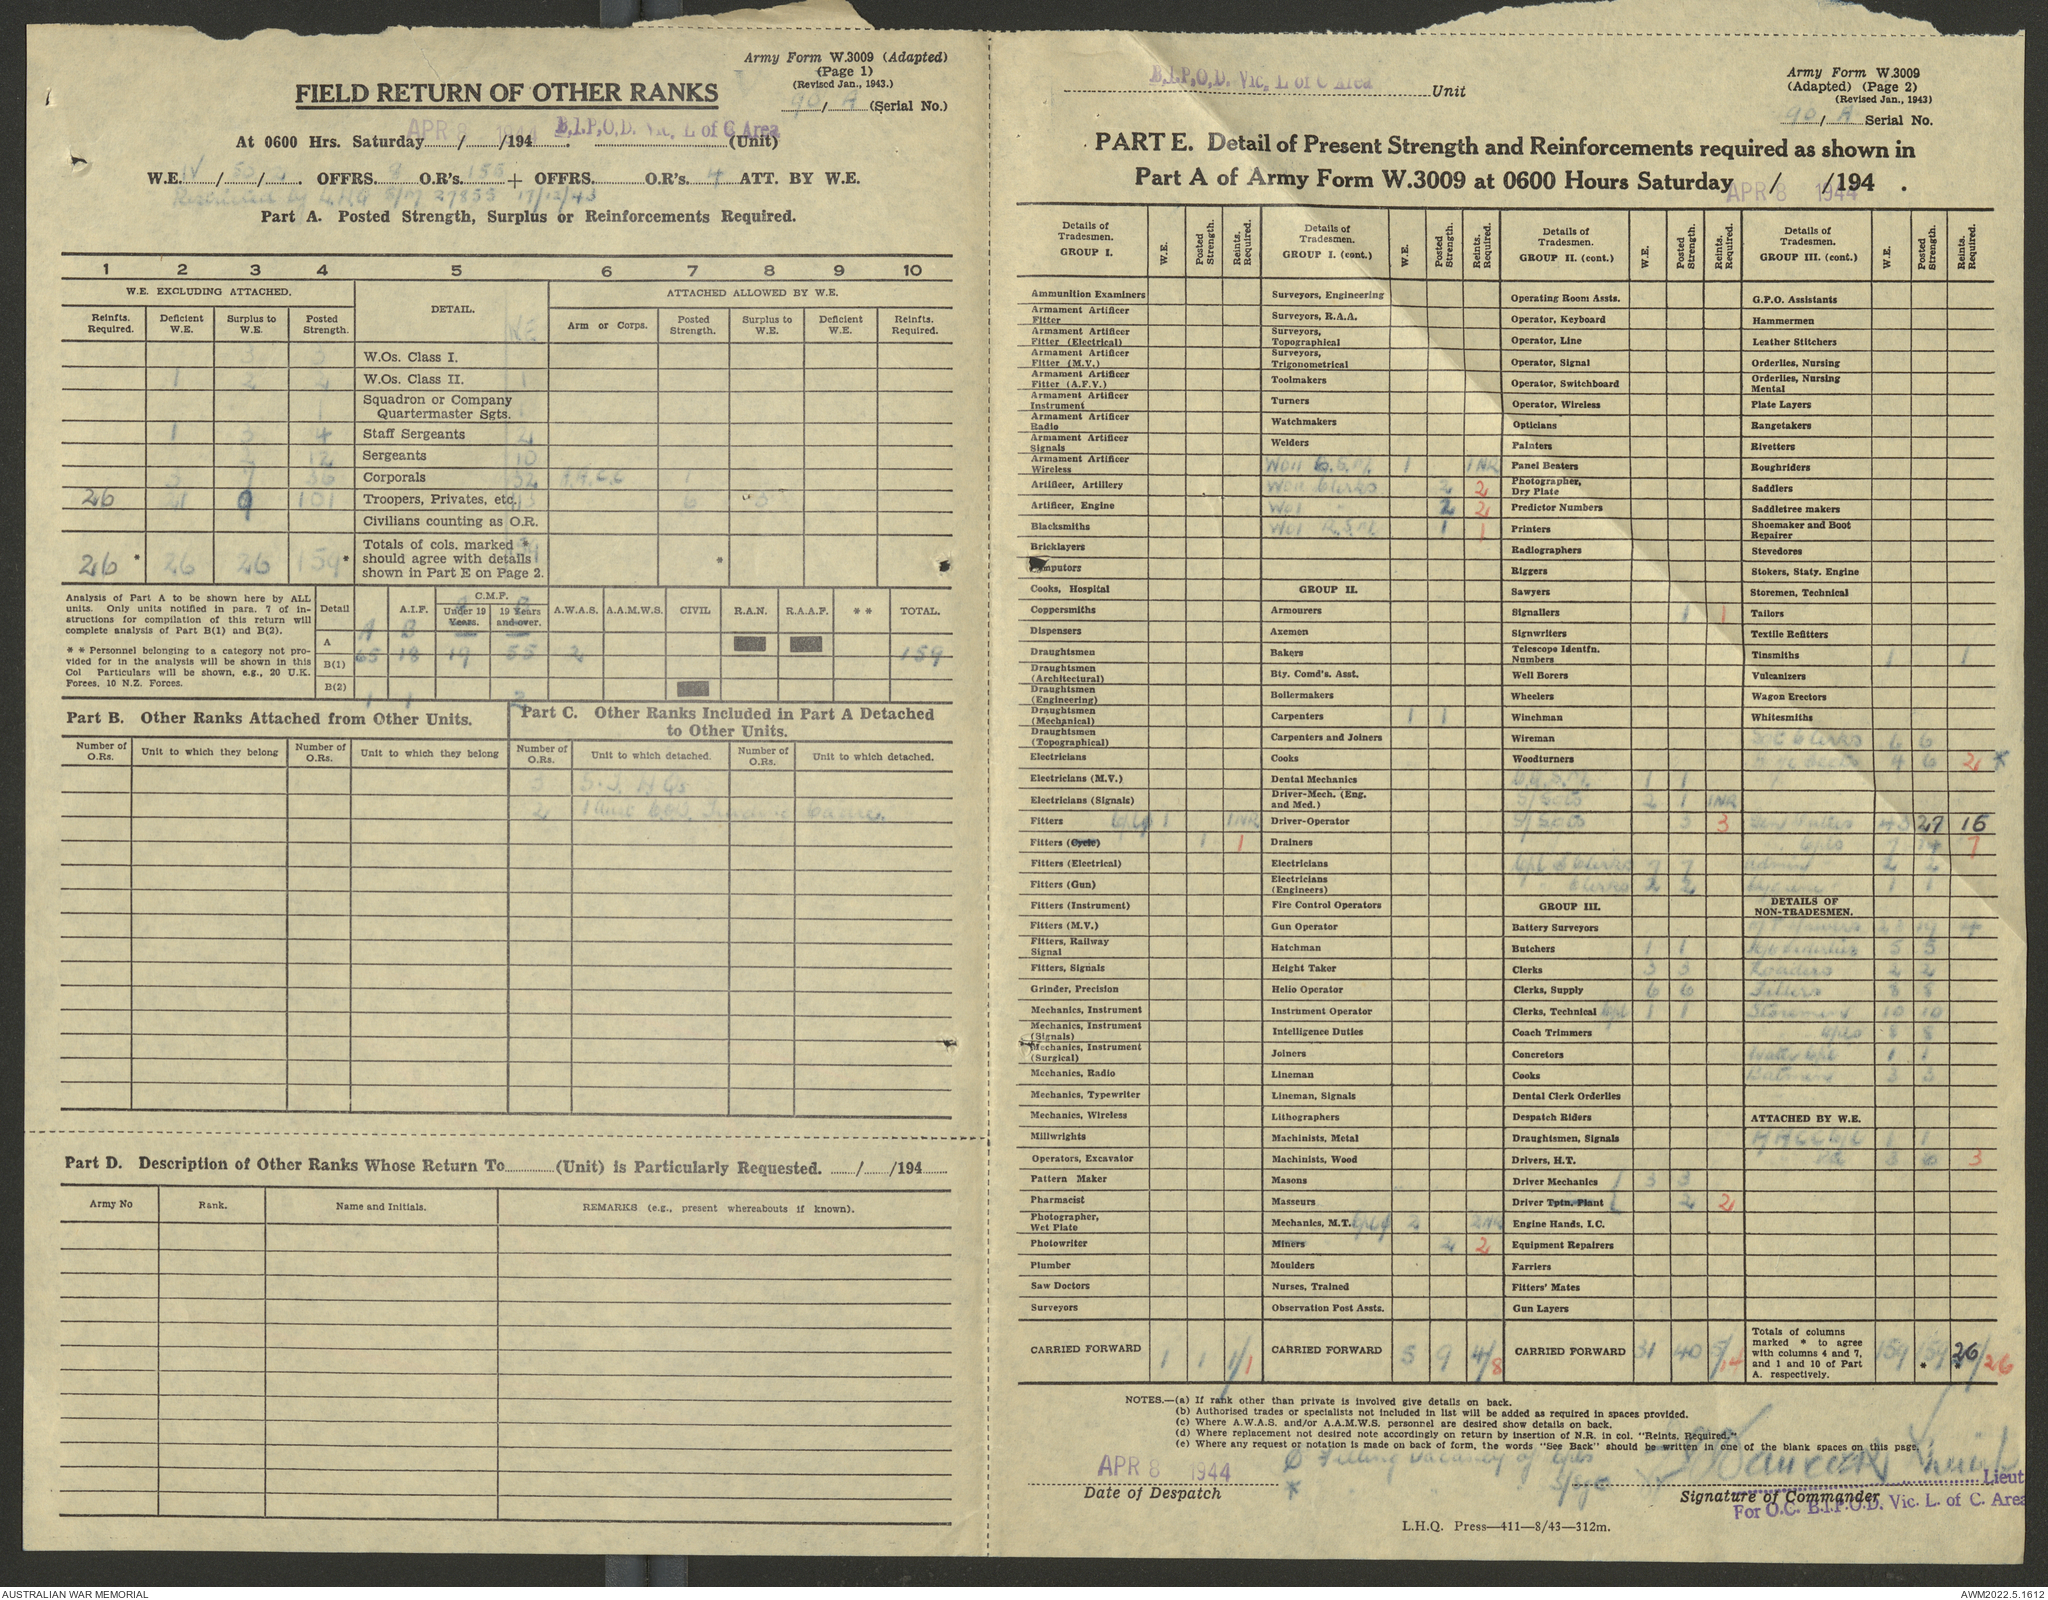 Army Form W.3009 (Adapted)
(Page 1)
(Revised Jan., 1943.)
FIELD RETURN OF OTHER RANKS
90/ A (Serial No.)
At 0600 Hrs. Saturday APR 8 1944 / /194 . B.I.P.O.D. Vic. L of C Area (Unit)
W.E. IV / / . OFFRS. 8 O.R's. 155 + OFFRS. O.R's. 4 ATT. BY W.E.
by L.H.Q 27855 17/12/43
Part A. Posted Strength, Surplus or Reinforcements Required.
1 2 3 4 5 6 7 8 9 10
W.E. EXCLUDING ATTACHED. DETAIL. ATTACHED ALLOWED BY W.E.
Reinfts. Required. Deficient W.E. Surplus to W.E. Posted Strength. W.E Arm or Corps. Posted Strength. Surplus to W.E. Deficient W.E. Reinfts. Required.
3 3 W.Os. Class I.
1 2 2 W.Os. Class II. 1
Squadron or Company Quartermaster Sgts.
1 3 4 Staff Sergeants
2 12 Sergeants 10
3 7 36 Corporals 32 1
26 21 9 101 Troopers, Privates, etc. 6
Civilians counting as O.R.
26 * 26 26 159 * Totals of cols. marked * should agree with details shown in Part E on Page 2. *
Analysis of Part A to be shown here by ALL units. Only units notified in para. 7 of instructions for compilation of this return will complete analysis of Part B(1) and B(2).
* * Personnel belonging to a category not provided for in the analysis will be shown in this Col Particulars will be shown, e.g., 20 U.K. Forces, 10 N.Z. Forces.
Detail A.I.F. C.M.F. Under 19 Years. 19 Years and over. A.W.A.S. A.A.M.W.S. CIVIL R.A.N. R.A.A.F. * * TOTAL.
A B
A 65 18 19 55 2 159
B(1)
B(2) 1 1 2
Part B. Other Ranks Attached from Other Units.
Number of O.Rs. Unit to which they belong Number of O.Rs. Unit to which they belong
Part C. Other Ranks Included in Part A Detached to Other Units.
Number of O.Rs. Unit to which detached. Number of O.Rs. Unit to which detached.
3
2
Part D. Description of Other Ranks Whose Return To (Unit) is Particularly Requested. / /194
Army No Rank. Name and Initials. REMARKS (e.g., present whereabouts if known).
B.I.P.O.D. Vic. L of C Area Unit
Army Form W.3009
(Adapted) (Page 2)
(Revised Jan., 1943)
90/ A Serial No.
PART E. Detail of Present Strength and Reinforcements required as shown in
Part A of Army Form W.3009 at 0600 Hours Saturday APR 8 1944 / /194 .
Details of Tradesmen. GROUP I. W.E. Posted Strength. Reints. Required.
Ammunition Examiners
Armament Artificer Fitter
Armament Artificer Fitter (Electrical)
Armament Artificer Fitter (M.V.)
Armament Artificer Fitter (A.F.V.)
Armament Artificer Instrument
Armament Artificer Radio
Armament Artificer Signals
Armament Artificer Wireless
Artificer, Artillery
Artificer, Engine
Blacksmiths
Bricklayers
Computors
Cooks, Hospital
Coppersmiths
Dispensers
Draughtsmen
Draughtsmen (Architectural)
Draughtsmen (Engineering)
Draughtsmen (Mechanical)
Draughtsmen (Topographical)
Electricians
Electricians (M.V.)
Electricians (Signals)
Fitters 1 1NR
Fitters (Cycle) 1 1
Fitters (Electrical)
Fitters (Gun)
Fitters (Instrument)
Fitters (M.V.)
Fitters, Railway Signal
Fitters, Signals
Grinder, Precision
Mechanics, Instrument
Mechanics, Instrument (Signals)
Mechanics, Instrument (Surgical)
Mechanics, Radio
Mechanics, Typewriter
Mechanics, Wireless
Millwrights
Operators, Excavator
Pattern Maker
Pharmacist
Photographer, Wet Plate
Photowriter
Plumber
Saw Doctors
Surveyors
CARRIED FORWARD 1 1 1/1
Details of Tradesmen. GROUP I. (cont.) W.E. Posted Strength. Reints. Required.
Surveyors, Engineering
Surveyors, R.A.A.
Surveyors, Topographical
Surveyors, Trigonometrical
Toolmakers
Turners
Watchmakers
Welders
WOII 1 1NR
WOII Clerks 2 2
WOI 2 2
WOI R.S.M. 1 1
GROUP II.
Armourers
Axemen
Bakers
Bty. Comd's. Asst.
Boilermakers
Carpenters 1 1
Carpenters and Joiners
Cooks
Dental Mechanics
Driver-Mech. (Eng. and Med.)
Driver-Operator
Drainers
Electricians
Electricians (Engineers)
Fire Control Operators
Gun Operator
Hatchman
Height Taker
Helio Operator
Instrument Operator
Intelligence Duties
Joiners
Lineman
Lineman, Signals
Lithographers
Machinists, Metal
Machinists, Wood
Masons
Masseurs
Mechanics, M.T. 2 2NR
Miners 2 2
Moulders
Nurses, Trained
Observation Post Assts.
CARRIED FORWARD 5 9 4/8
Details of Tradesmen. GROUP II. (cont.) W.E. Posted Strength. Reints. Required.
Operating Room Assts.
Operator, Keyboard
Operator, Line
Operator, Signal
Operator, Switchboard
Operator, Wireless
Opticians
Painters
Panel Beaters
Photographer, Dry Plate
Predictor Numbers
Printers
Radiographers
Riggers
Sawyers
Signallers 1 1
Signwriters
Telescope Identfn. Numbers
Well Borers
Wheelers
Winchman
Wireman
Woodturners
1 1
S/Sgts 2 1 1NR
S/Sgts 3 3
Cpl Clerks 7 7
Clerks 2 2
GROUP III.
Battery Surveyors
Butchers 1 1
Clerks 3 3
Clerks, Supply 6 6
Clerks, Technical Cpl 1 1
Coach Trimmers
Concretors
Cooks
Dental Clerk Orderlies
Despatch Riders
Draughtsmen, Signals
Drivers, H.T.
Driver Mechanics 3 3
Driver Tptn. Plant 2 2
Engine Hands, I.C.
Equipment Repairers
Farriers
Fitters' Mates
Gun Layers
CARRIED FORWARD 31 40
Details of Tradesmen. GROUP III. (cont.) W.E. Posted Strength. Reints. Required.
G.P.O. Assistants
Hammermen
Leather Stitchers
Orderlies, Nursing
Orderlies, Nursing Mental
Plate Layers
Rangetakers
Rivetters
Roughriders
Saddlers
Saddletree makers
Shoemaker and Boot Repairer
Stevedores
Stokers, Staty. Engine
Storemen, Technical
Tailors
Textile Refitters
Tinsmiths 1 1
Vulcanizers
Wagon Erectors
Whitesmiths
Clerks 6 6
4 6 2 *
27 16
Cpls 7 14 7
2 2
Hygiene 1 1
DETAILS OF NON-TRADESMEN.
19 4
5 5
Loaders 2 2
Fillers 8 8
Storemen 10 10
Cpls 8 8
Water Cpl 1 1
Batmen 3 3
ATTACHED BY W.E.
1 1
3 6 3
Totals of columns marked * to agree with columns 4 and 7, and 1 and 10 of Part A. respectively. 159 159 * 26/26 *
NOTES.—(a) If rank other than private is involved give details on back.
(b) Authorised trades or specialists not included in list will be added as required in spaces provided.
(c) Where A.W.A.S. and/or A.A.M.W.S. personnel are desired show details on back.
(d) Where replacement not desired note accordingly on return by insertion of N.R. in col. "Reints. Required."
(e) Where any request or notation is made on back of form, the words "See Back" should be written in one of the blank spaces on this page.
Filling vacancy of Cpls
APR 8 1944
Date of Despatch
* S/Sgt
Signature of Commander Lieut
For O.C. B.I.P.O.D. Vic. L. of C. Area
L.H.Q. Press—411—8/43—312m.
AUSTRALIAN WAR MEMORIAL
AWM2022.5.1612